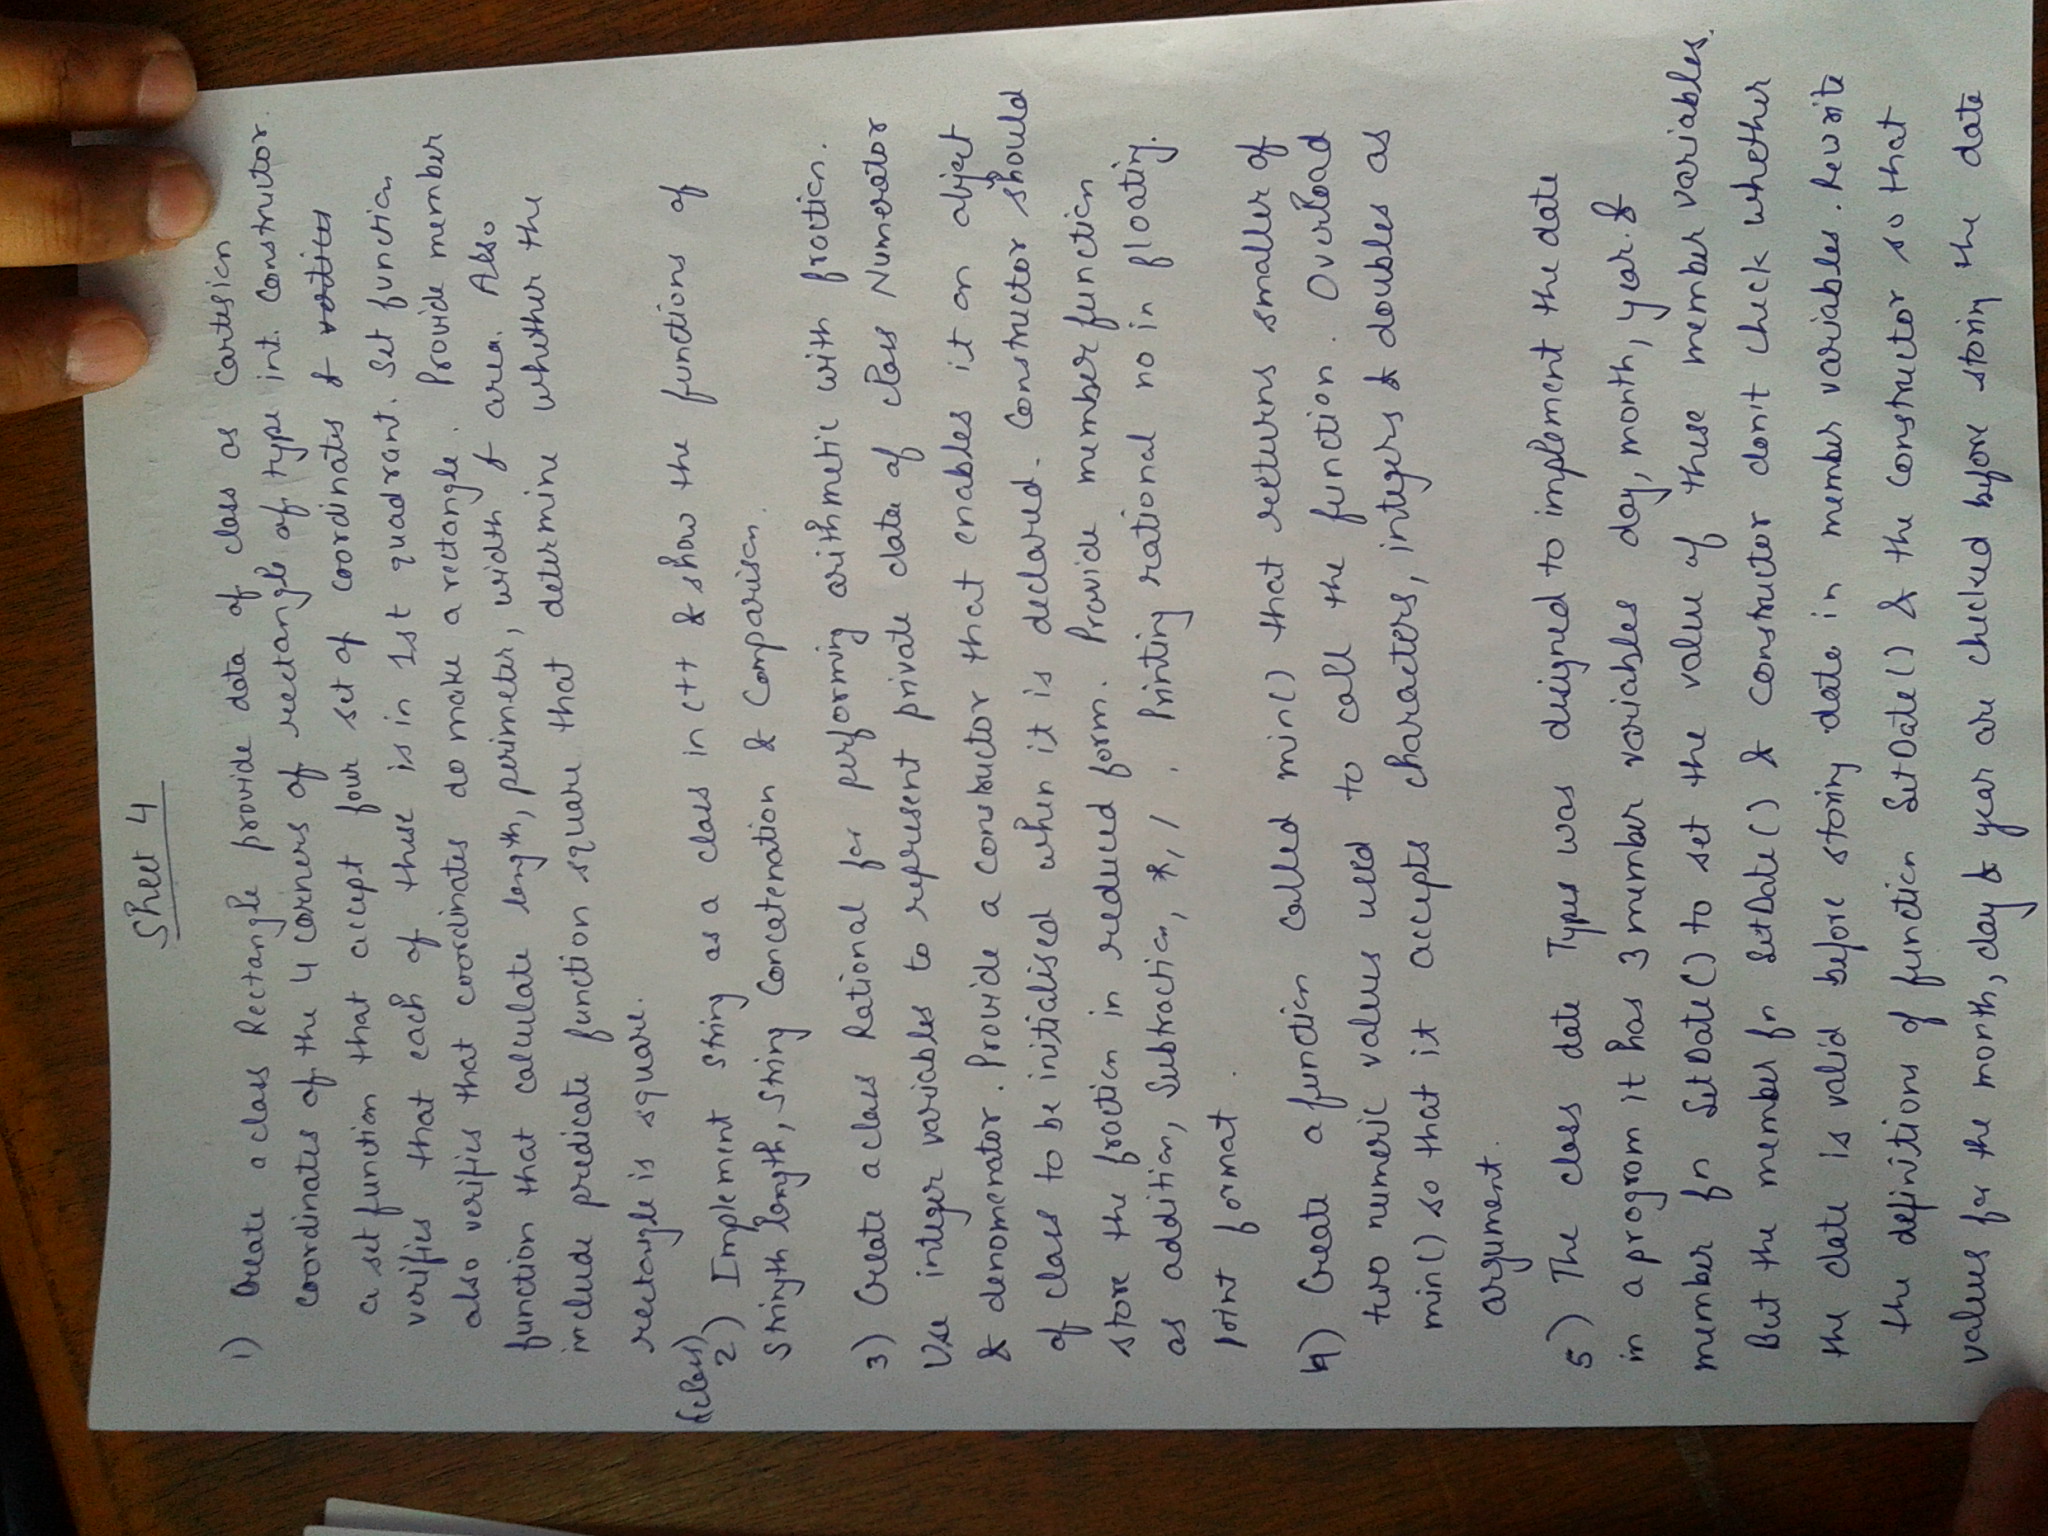 Sheet 4
1) Create a class Rectangle provide data of class as Cartesian
coordinates of the 4 corners of rectangle of type int. Constructor
a set function that accept four set of coordinates & vertices
verifies that each of these is in 1st quadrant. Set function
also verifies that coordinates do make a rectangle. Provide member
function that calculate length, perimeter, width & area. Also
include predicate function square that determine whether the
rectangle is square.
(class)
2) Implement String as a class in C++ & show the functions of
Stringth length, String Concatenation & Comparison.
3) Create a class Rational for performing arithmetic with fraction.
Use integer variables to represent private data of class Numerator
& denomenator. Provide a constructor that enables it an object
of class to be initialised when it is declared. Constructor should
store the fraction in reduced form. Provide member function
as addition, Subtraction, *, / . Printing rational no in floating.
Point format.
4) Create a function called min() that returns smaller of
two numeric values used to call the function. Overload
min() so that it accepts characters, integers & doubles as
argument.
5) The class date Types was designed to implement the date
in a program it has 3 member variables day, month, year. &
member fn SetDate() to set the value of these member variables.
But the member fn SetDate() & constructor don't check whether
the date is valid before storing date in member variables. Rewrite
the definitions of function SetDate() & the constructor so that
values for the month, day & year are checked before storing the date